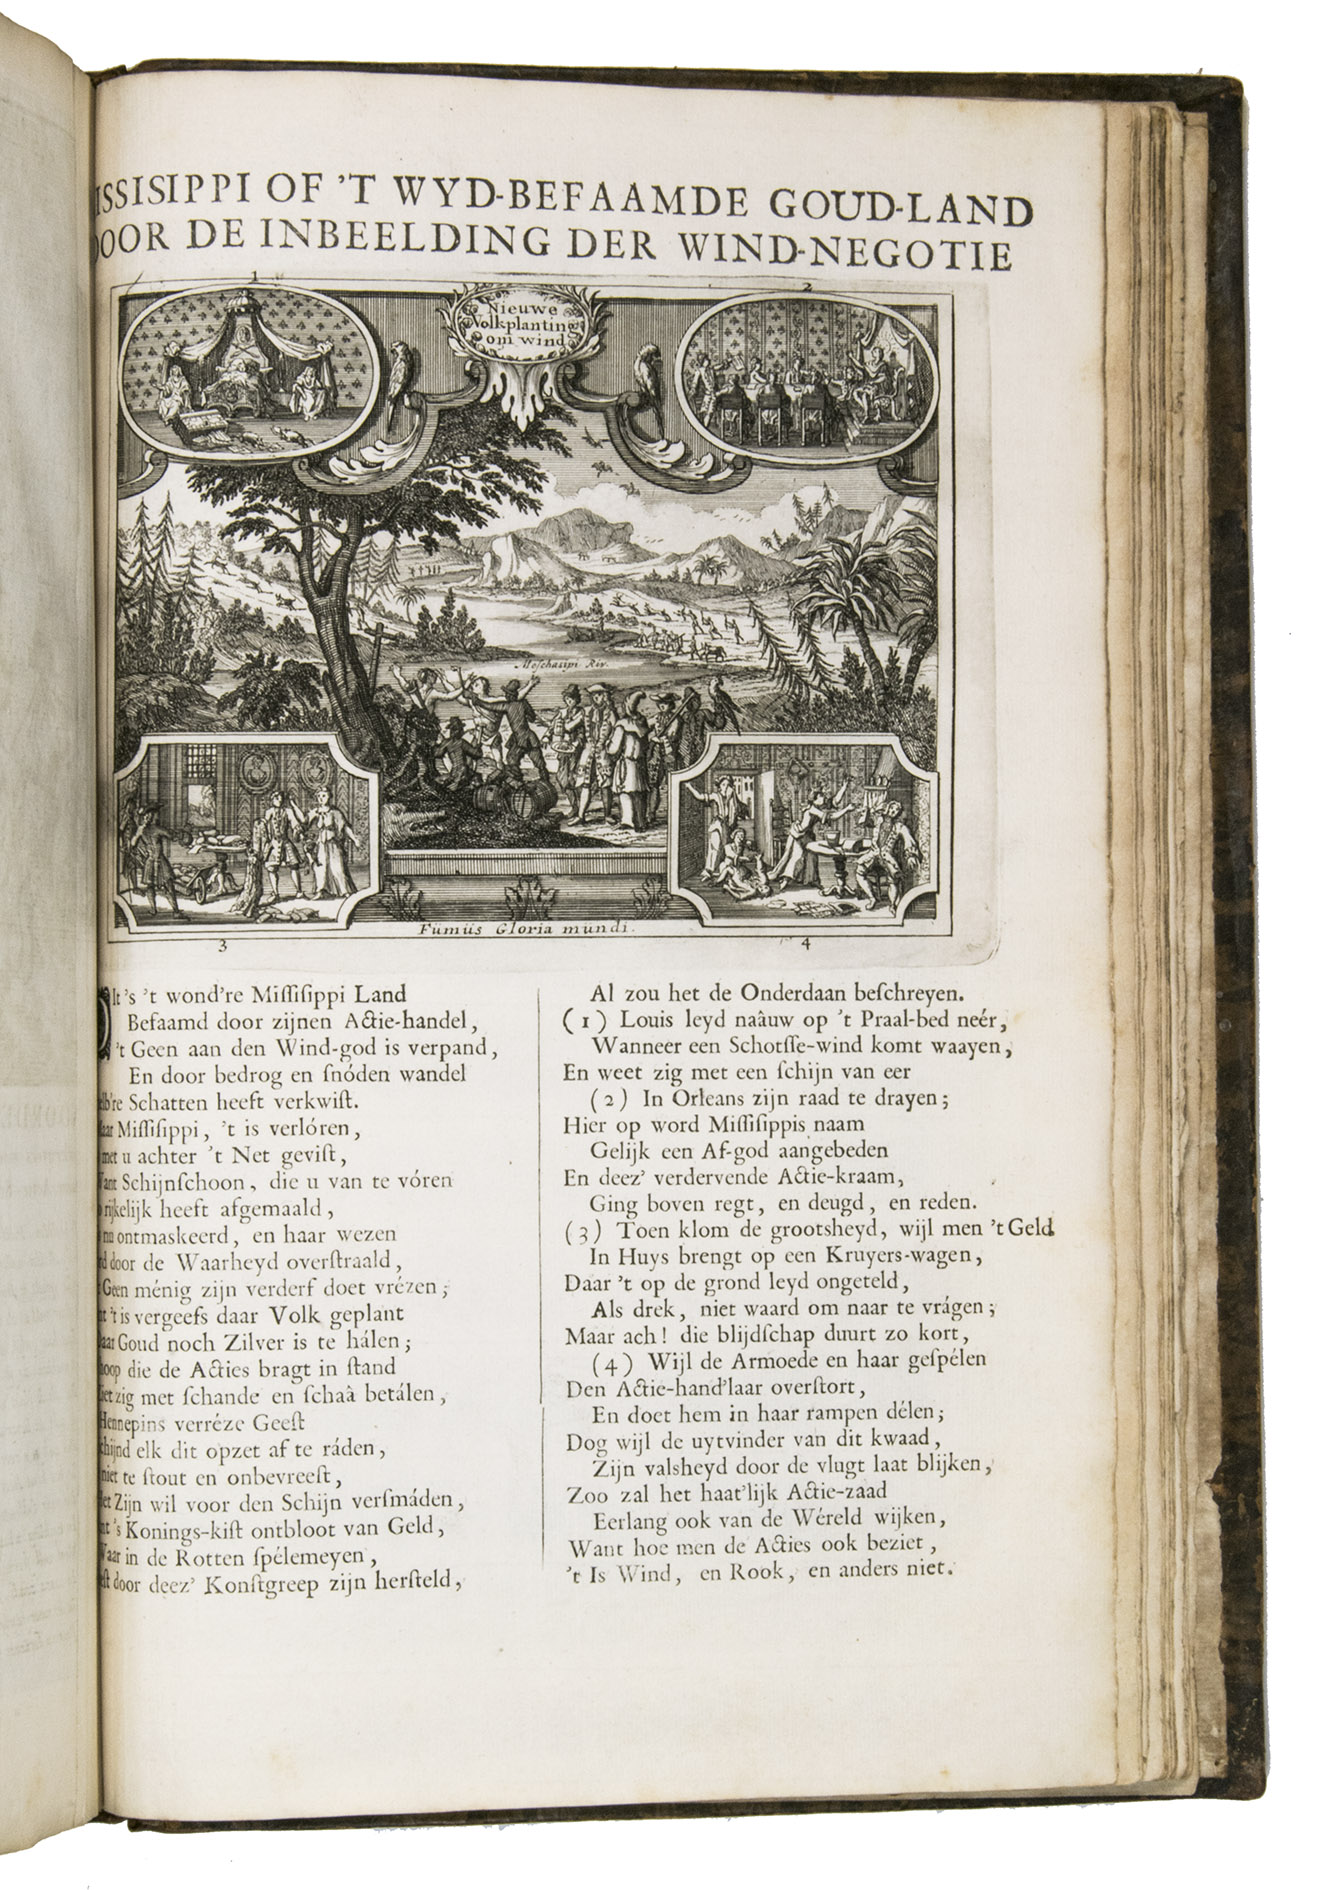 ISSISIPPI OF 'T WYD-BEFAAMDE GOUD-LAND
OOR DE INBEELDING DER WIND-NEGOTIE
1
2
Nieuwe
Volkplanting
om wind
Moschasipi Riv.
Fumüs Gloria mundi.
3
4
It's 't wond're Miſſiſippi Land
Befaamd door zijnen Actie-handel,
't Geen aan den Wind-god is verpand,
En door bedrog en ſnóden wandel
Schatten heeft verkwiſt.
Miſſiſippi, 't is verlóren,
u achter 't Net geviſt,
Schijnſchoon, die u van te vóren
heeft afgemaald,
ontmaskeerd, en haar wezen
door de Waarheyd overſtraald,
Geen ménig zijn verderf doet vrézen;
't is vergeefs daar Volk geplant
Goud noch Zilver is te hálen;
die de Acties bragt in ſtand
zig met ſchande en ſchaâ betálen,
Hennepins verréze Geeſt
elk dit opzet af te ráden,
te ſtout en onbevreeſt,
Zijn wil voor den Schijn verſmáden,
's Konings-kiſt ontbloot van Geld,
in de Rotten ſpélemeyen,
door deez' Konſtgreep zijn herſteld,
Al zou het de Onderdaan beſchreyen.
(1) Louis leyd naâuw op 't Praal-bed neér,
Wanneer een Schotſſe-wind komt waayen,
En weet zig met een ſchijn van eer
(2) In Orleans zijn raad te drayen;
Hier op word Miſſiſippis naam
Gelijk een Af-god aangebeden
En deez' verdervende Actie-kraam,
Ging boven regt, en deugd, en reden.
(3) Toen klom de grootsheyd, wijl men 't Geld
In Huys brengt op een Kruyers-wagen,
Daar 't op de grond leyd ongeteld,
Als drek, niet waard om naar te vrágen;
Maar ach! die blijdſchap duurt zo kort,
(4) Wijl de Armoede en haar geſpélen
Den Actie-hand'laar overſtort,
En doet hem in haar rampen délen;
Dog wijl de uytvinder van dit kwaad,
Zijn valsheyd door de vlugt laat blijken,
Zoo zal het haat'lijk Actie-zaad
Eerlang ook van de Wéreld wijken,
Want hoe men de Acties ook beziet,
't Is Wind, en Rook, en anders niet.